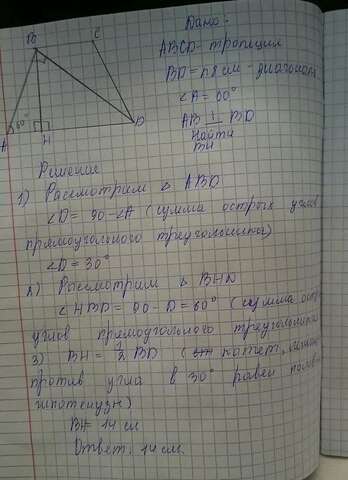 Дано:
B
C
ABCD - трапеция
BD = 28 см - диагональ
∠A = 60°
AB ⊥ BD
Найти
BH
60°
A
H
D
Решение
1) Рассмотрим Δ ABD
∠D = 90 - ∠A (сумма острых углов
прямоугольного треугольника)
∠D = 30°
2) Рассмотрим Δ BHD
∠HBD = 90 - D = 60° (сумма
углов прямоугольного треугольника
3) BH = BD (катет,
против угла в 30° равен
гипотенузы)
BH = 14 см
Ответ: 14 см.